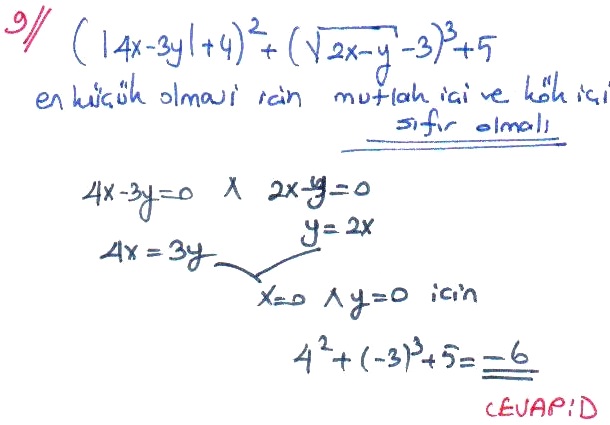 9// (|4x-3y|+4)²+(√2x-y-3)³+5
en küçük olması için mutlak içi ve kök içi
sıfır olmalı
4x-3y=0 ∧ 2x-y=0
y=2x
4x=3y
x=0 ∧ y=0 için
4²+(-3)³+5=-6
CEVAP:D